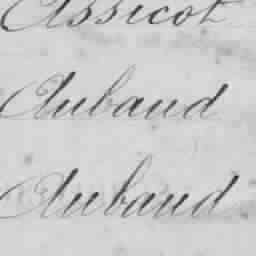 Assicot
Aubaud
Aubaud